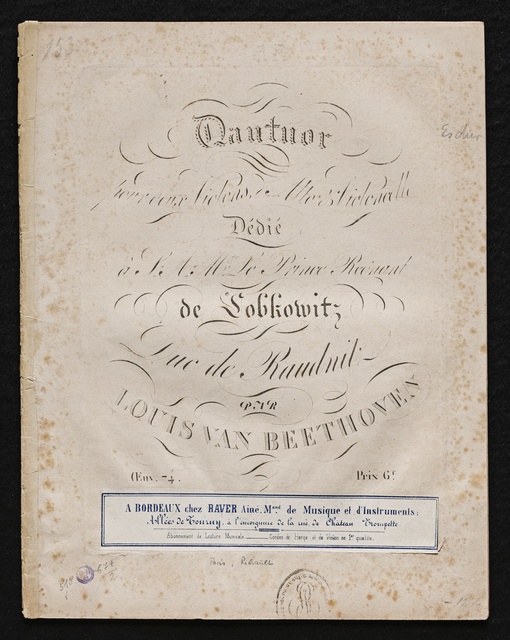 Quatuor
pour deux Violons, Alto & Violoncelle
Dédié
à S. A. Mgr. Le Prince Regnant
de Lobkowitz
Duc de Raudnitz
PAR
LOUIS VAN BEETHOVEN
Œuv. 74. Prix 6f
A BORDEAUX chez RAVER Aîné, Mand de Musique et d'Instruments;
Allées de Tourny, à l'encognure de la rue de Château Trompette
Abonnement de Lecture Musicale Cordes de Naples et de Violon en 1re qualité.
Paris, Richault